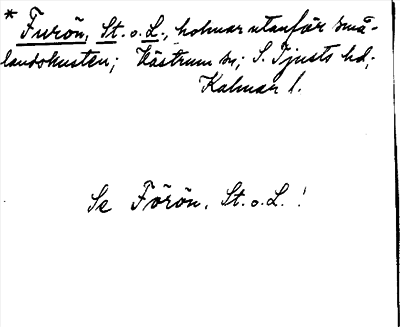 * Furön, St. o. L., holmar utanför små-
landskusten; Västrum sn; S. Tjusts hd;
Kalmar l.
Se Förön, St. o. L. !